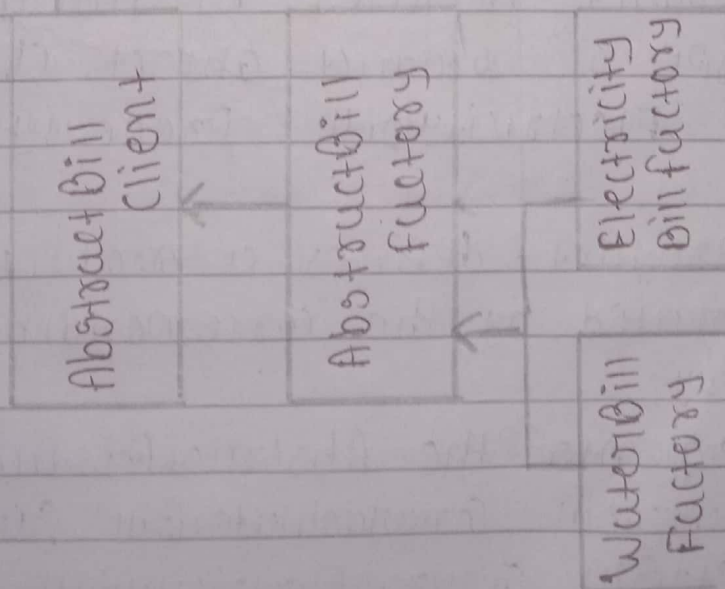 AbstructBill
Client
AbstructBill
Fuctory
WaterBill
Fuctory
Electricity
Bill Fuctory